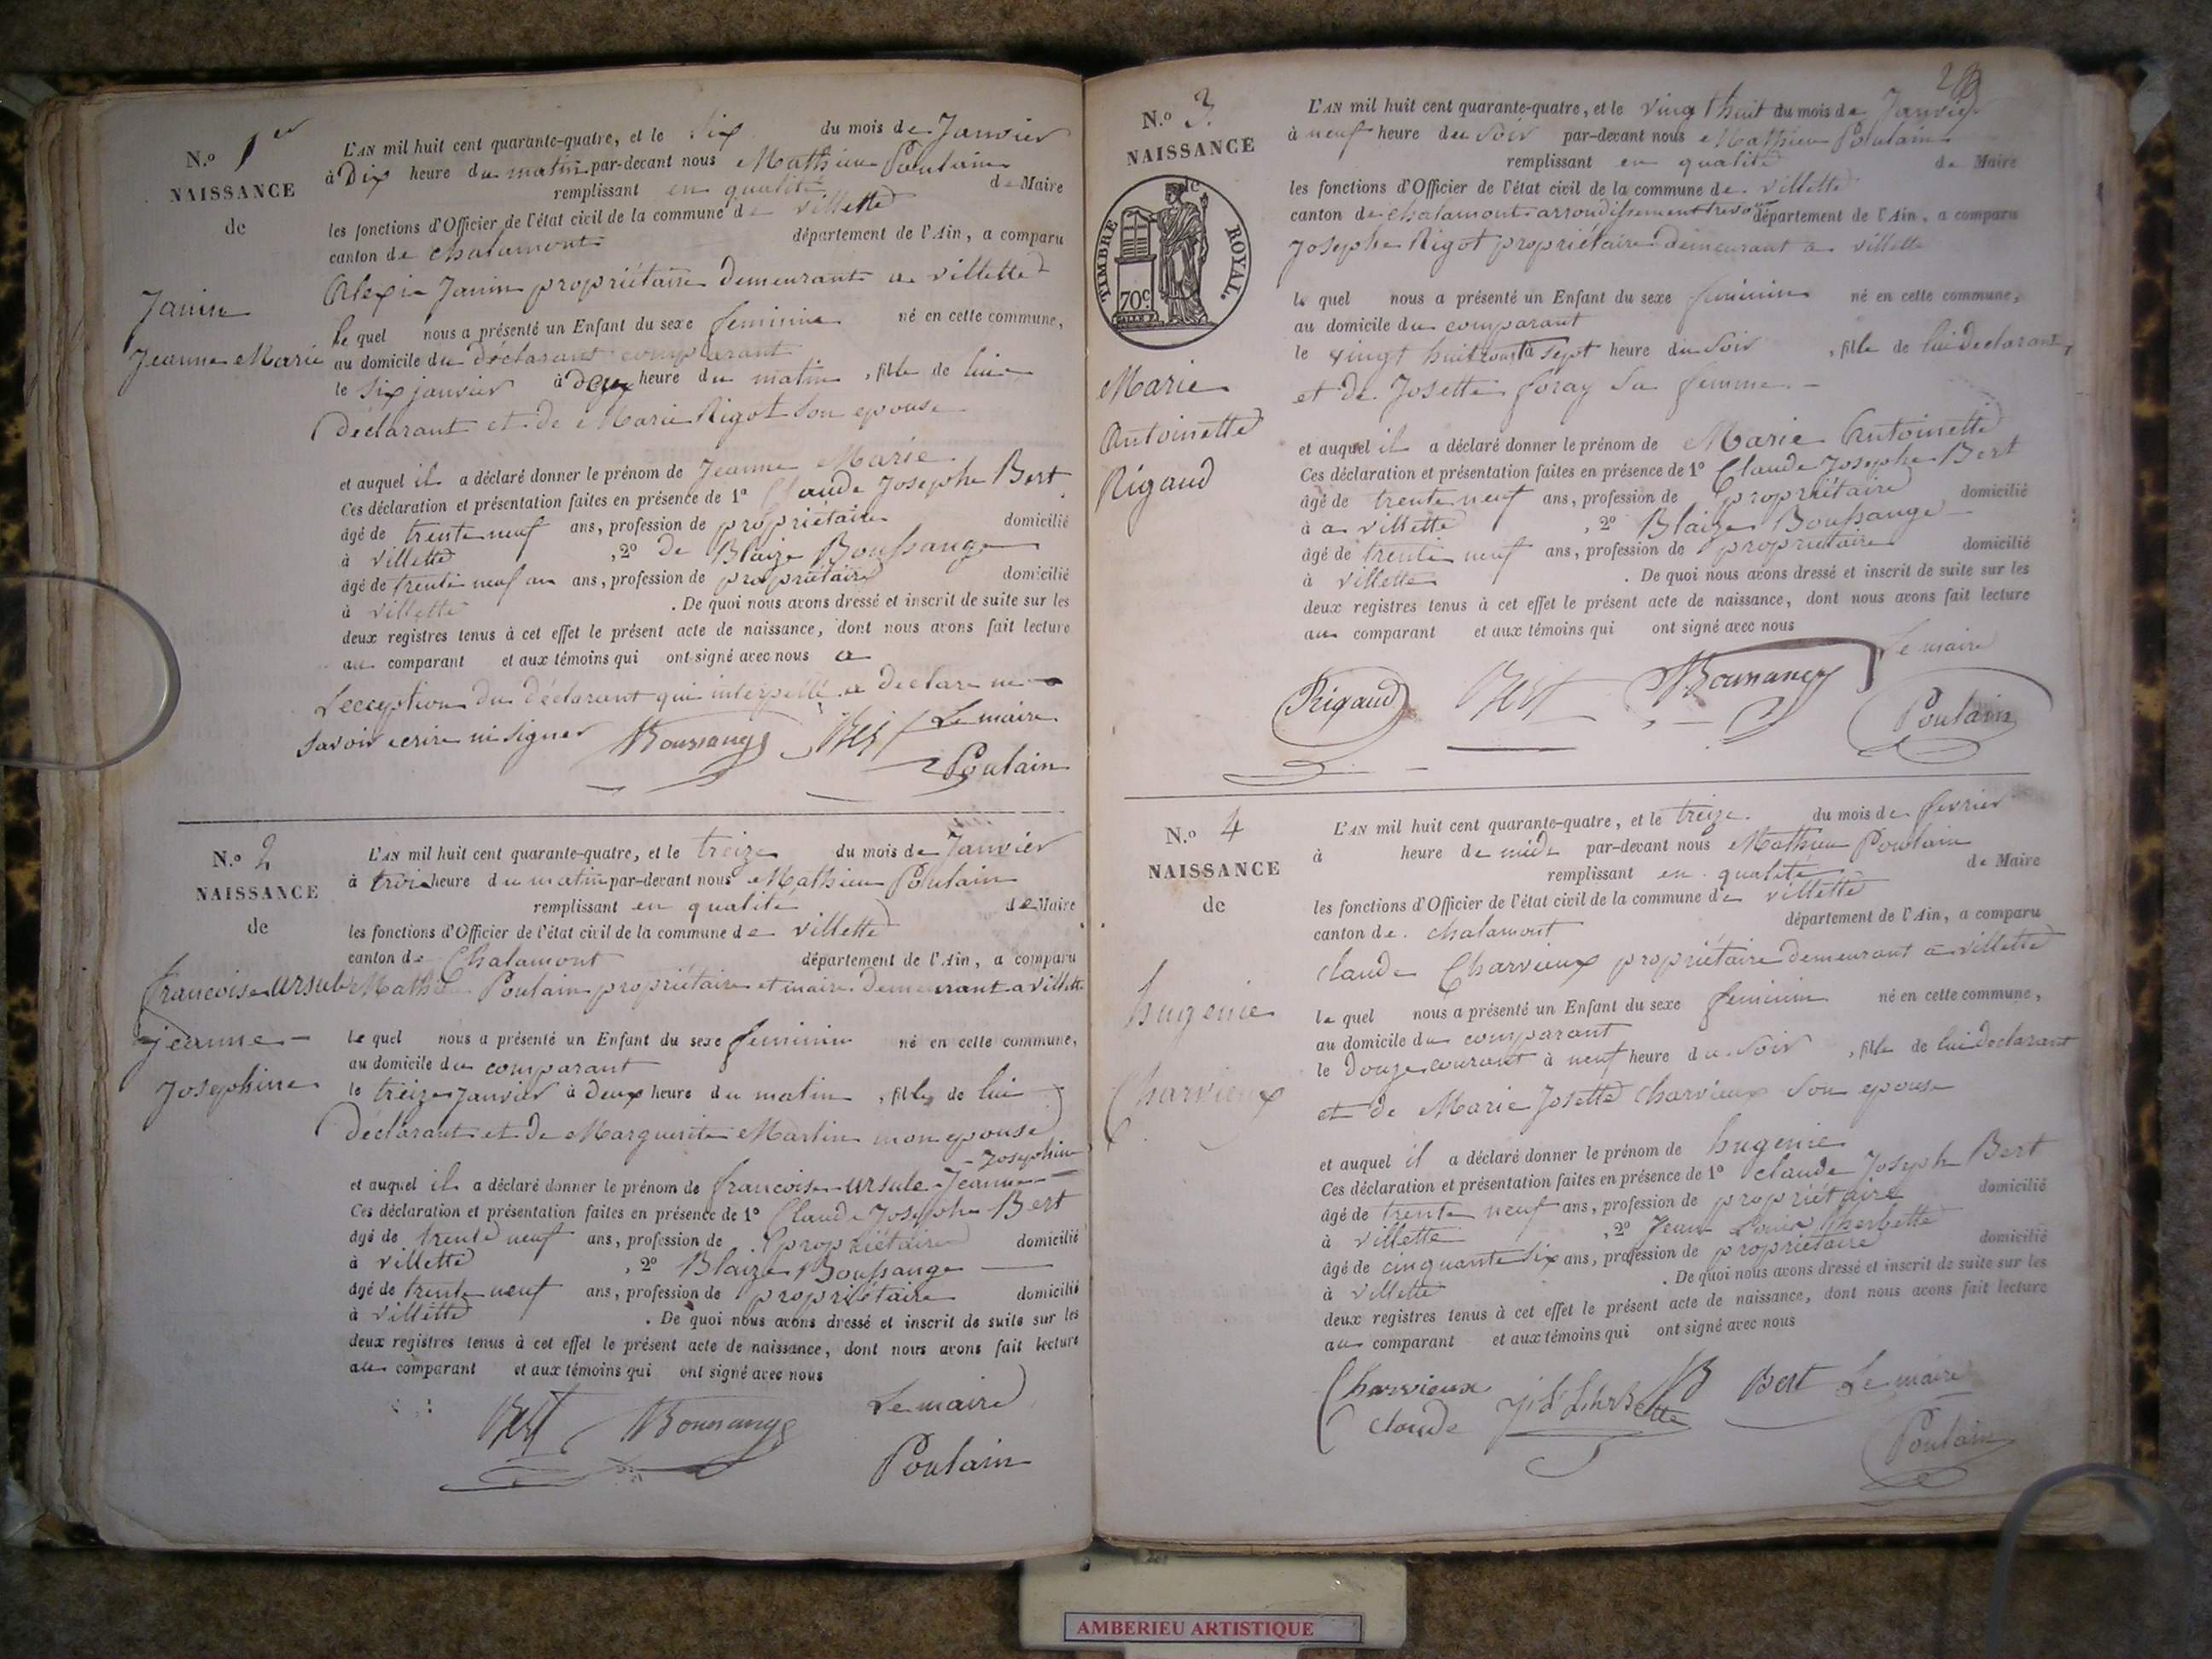 N.º 1er
NAISSANCE
de
Janin
Jeanne Marie
L'AN mil huit cent quarante-quatre, et le Six du mois de Janvier
à Dix heure du matin par-devant nous Mathieu Poulain
remplissant en qualité de Maire
les fonctions d'Officier de l'état civil de la commune de villette
canton de chalamont département de l'Ain, a comparu
Alexis Janin propriétaire demeurant a villette
le quel nous a présenté un Enfant du sexe feminin né en cette commune,
au domicile du déclarant comparant
le six janvier à deux heure du matin, fille de lui
déclarant et de Marie Rigot Son epouse
et auquel il a déclaré donner le prénom de Jeanne Marie
Ces déclaration et présentation faites en présence de 1º Claude Josephe Bert
âgé de trente neuf ans, profession de propriétaire domicilié
à villette, 2º de Blaize Boussange
âgé de trente neuf an ans, profession de propriétaire domicilié
à villette. De quoi nous avons dressé et inscrit de suite sur les
deux registres tenus à cet effet le présent acte de naissance, dont nous avons fait lecture
au comparant et aux témoins qui ont signé avec nous a
Lecception du déclarant qui interpellé a declare ne
Savoir ecrire ni signer Boussange Bert Le maire
Poulain
N.º 2
NAISSANCE
de
francoise ursule
jeanne
Josephine
L'AN mil huit cent quarante-quatre, et le treize du mois de Janvier
à trois heure du matin par-devant nous Mathieu Poulain
remplissant en qualité de Maire
les fonctions d'Officier de l'état civil de la commune de villette
canton de Chalamont département de l'Ain, a comparu
Mathieu Poulain propriétaire et maire demeurant a villette
le quel nous a présenté un Enfant du sexe feminin né en cette commune,
au domicile du comparant
le treize janvier à deux heure du matin, fille de lui
déclarant et de Marguerite Martin mon epouse
Josephine
et auquel il a déclaré donner le prénom de francoise ursule Jeanne
Ces déclaration et présentation faites en présence de 1º Claude Josephe Bert
âgé de trente neuf ans, profession de propriétaire domicilié
à villette, 2º Blaize Boussange
âgé de trente neuf ans, profession de propriétaire domicilié
à villette. De quoi nous avons dressé et inscrit de suite sur les
deux registres tenus à cet effet le présent acte de naissance, dont nous avons fait lecture
au comparant et aux témoins qui ont signé avec nous
Bert Boussange Le maire
Poulain
N.º 3
NAISSANCE
TIMBRE ROYAL.
70c.
Marie
Antoinette
Rigaud
L'AN mil huit cent quarante-quatre, et le vingt huit du mois de Janvier
à neuf heure du Soir par-devant nous Mathieu Poulain
remplissant en qualité de Maire
les fonctions d'Officier de l'état civil de la commune de villette
canton de chalamont arrondissement trevoux département de l'Ain, a comparu
Josephe Rigot propriétaire demeurant a villette
le quel nous a présenté un Enfant du sexe feminin né en cette commune,
au domicile du comparant
le vingt huit courant à sept heure du Soir, fille de lui declarant,
et de Josette foray Sa femme
et auquel il a déclaré donner le prénom de Marie Antoinette
Ces déclaration et présentation faites en présence de 1º Claude Josephe Bert
âgé de trente neuf ans, profession de propriétaire domicilié
à a villette, 2º Blaize Boussange
âgé de trente neuf ans, profession de propriétaire domicilié
à villette. De quoi nous avons dressé et inscrit de suite sur les
deux registres tenus à cet effet le présent acte de naissance, dont nous avons fait lecture
au comparant et aux témoins qui ont signé avec nous
Le maire
Rigaud Bert Boussange Poulain
N.º 4
NAISSANCE
de
hugenie
Charvieux
L'AN mil huit cent quarante-quatre, et le treize du mois de fevrier
à heure de midi par-devant nous Mathieu Poulain
remplissant en qualité de Maire
les fonctions d'Officier de l'état civil de la commune de villette
canton de chalamont département de l'Ain, a comparu
claude Charvieux propriétaire demeurant a villette
le quel nous a présenté un Enfant du sexe feminin né en cette commune,
au domicile du comparant
le douze courant à neuf heure du Soir, fille de lui declarant
et de Marie Josette Charvieux Son epouse
et auquel il a déclaré donner le prénom de hugenie
Ces déclaration et présentation faites en présence de 1º claude Joseph Bert
âgé de trente neuf ans, profession de propriétaire domicilié
à villette, 2º Jean Louis
âgé de cinquante six ans, profession de propriétaire domicilié
à villette. De quoi nous avons dressé et inscrit de suite sur les
deux registres tenus à cet effet le présent acte de naissance, dont nous avons fait lecture
au comparant et aux témoins qui ont signé avec nous
Charvieux Bert Le maire
claude Poulain
AMBERIEU ARTISTIQUE